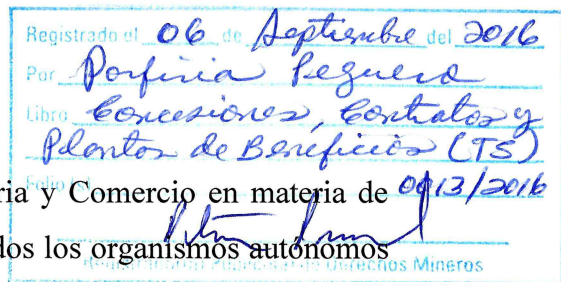 Registrado el 06 de Septiembre del 2016
Por Porfiria Peguero
Libro Concesiones, Contratos y
Plantas de Beneficios (TS)
Folio (s) 0013/2016
ria y Comercio en materia de
dos los organismos autónomos
Derechos Mineros